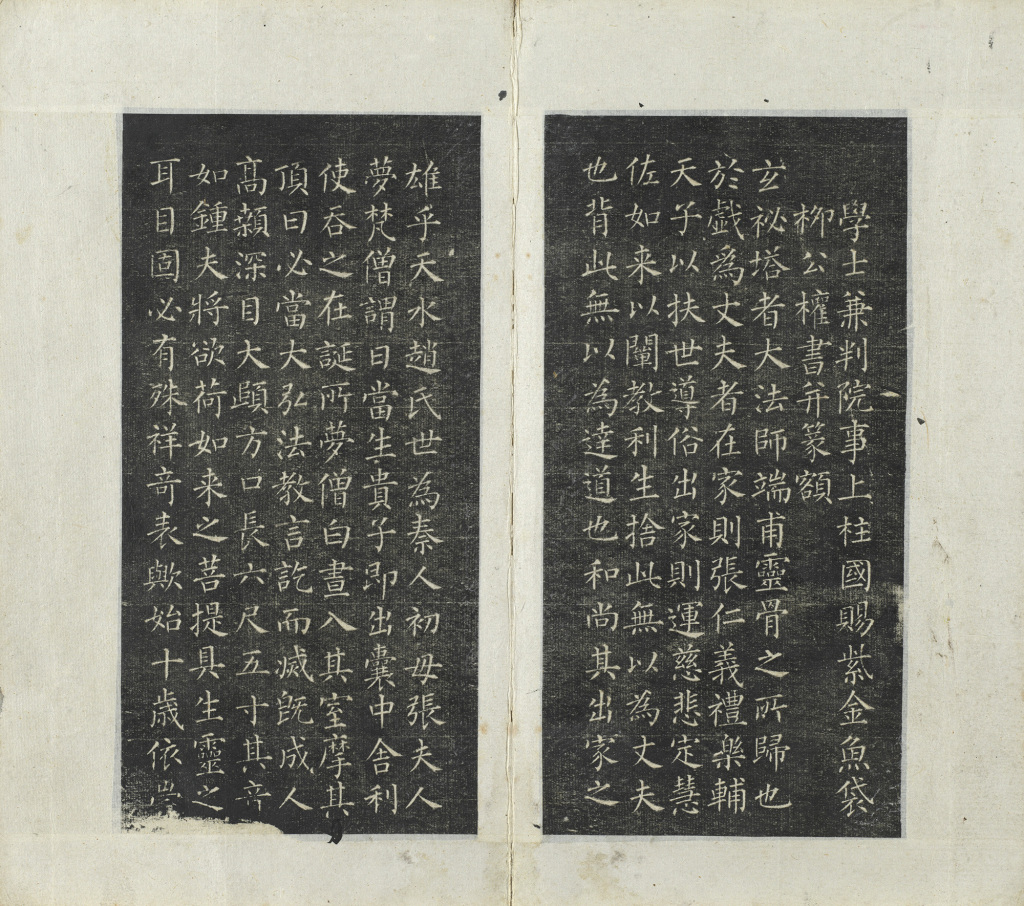 學士兼判院事上柱國賜紫金魚袋
柳公權書并篆額
玄祕塔者大法師端甫靈骨之所歸也
於戲為丈夫者在家則張仁義禮樂輔
天子以扶世導俗出家則運慈悲定慧
佐如来以闡教利生捨此無以為丈夫
也背此無以為達道也和尚其出家之
雄乎天水趙氏世為秦人初母張夫人
夢梵僧謂曰當生貴子即出囊中舍利
使吞之在誕所夢僧白晝入其室摩其
頂曰必當大弘法教言訖而滅既成人
高顙深目大頤方口長六尺五寸其音
如鍾夫將欲荷如来之菩提具生靈之
耳目固必有殊祥奇表歟始十歲依